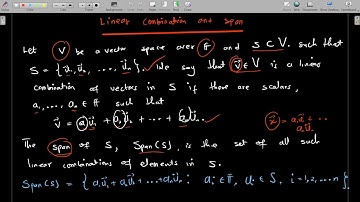 Linear combination and span
Let V be a vector space over F and S ⊂ V. such that
S = { u⃗₁, u⃗₂, ....., u⃗ₙ }. We say that v⃗ ∈ V is a linear
combination of vectors in S if there are scalars,
a₁, ...., aₙ ∈ F such that
v⃗ = a₁u⃗₁ + a₂u⃗₂ + ... + aₙu⃗ₙ.
x⃗ = a₁u⃗₁ + ...
aₙu⃗ₙ
The span of S, Span(S), is the set of all such
linear combinations of elements in S.
Span(S) = { a₁u⃗₁ + a₂u⃗₂ + ... + aₙu⃗ₙ : aᵢ ∈ F, uᵢ ∈ S, i = 1, 2, ..., n }